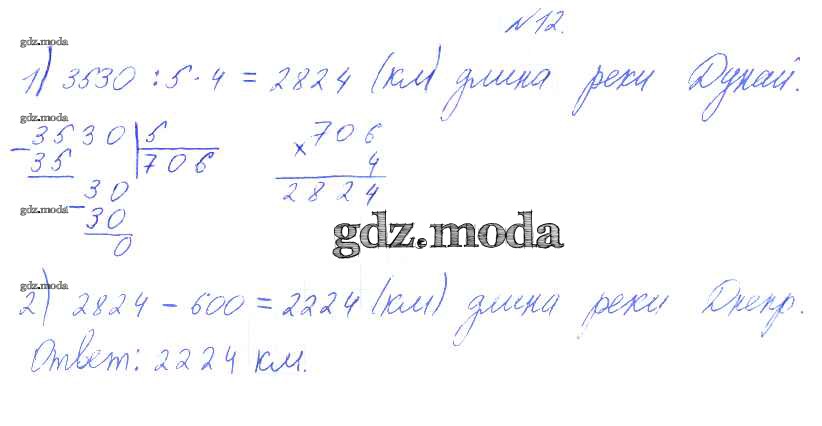 №12.
gdz.moda
1) 3530 : 5 · 4 = 2824 (км) длина реки Дунай.
gdz.moda
3530 | 5
− 35 | 706
30
− 30
0
706
× 4
2824
gdz.moda
gdz.moda
gdz.moda
2) 2824 − 600 = 2224 (км) длина реки Днепр.
Ответ: 2224 км.